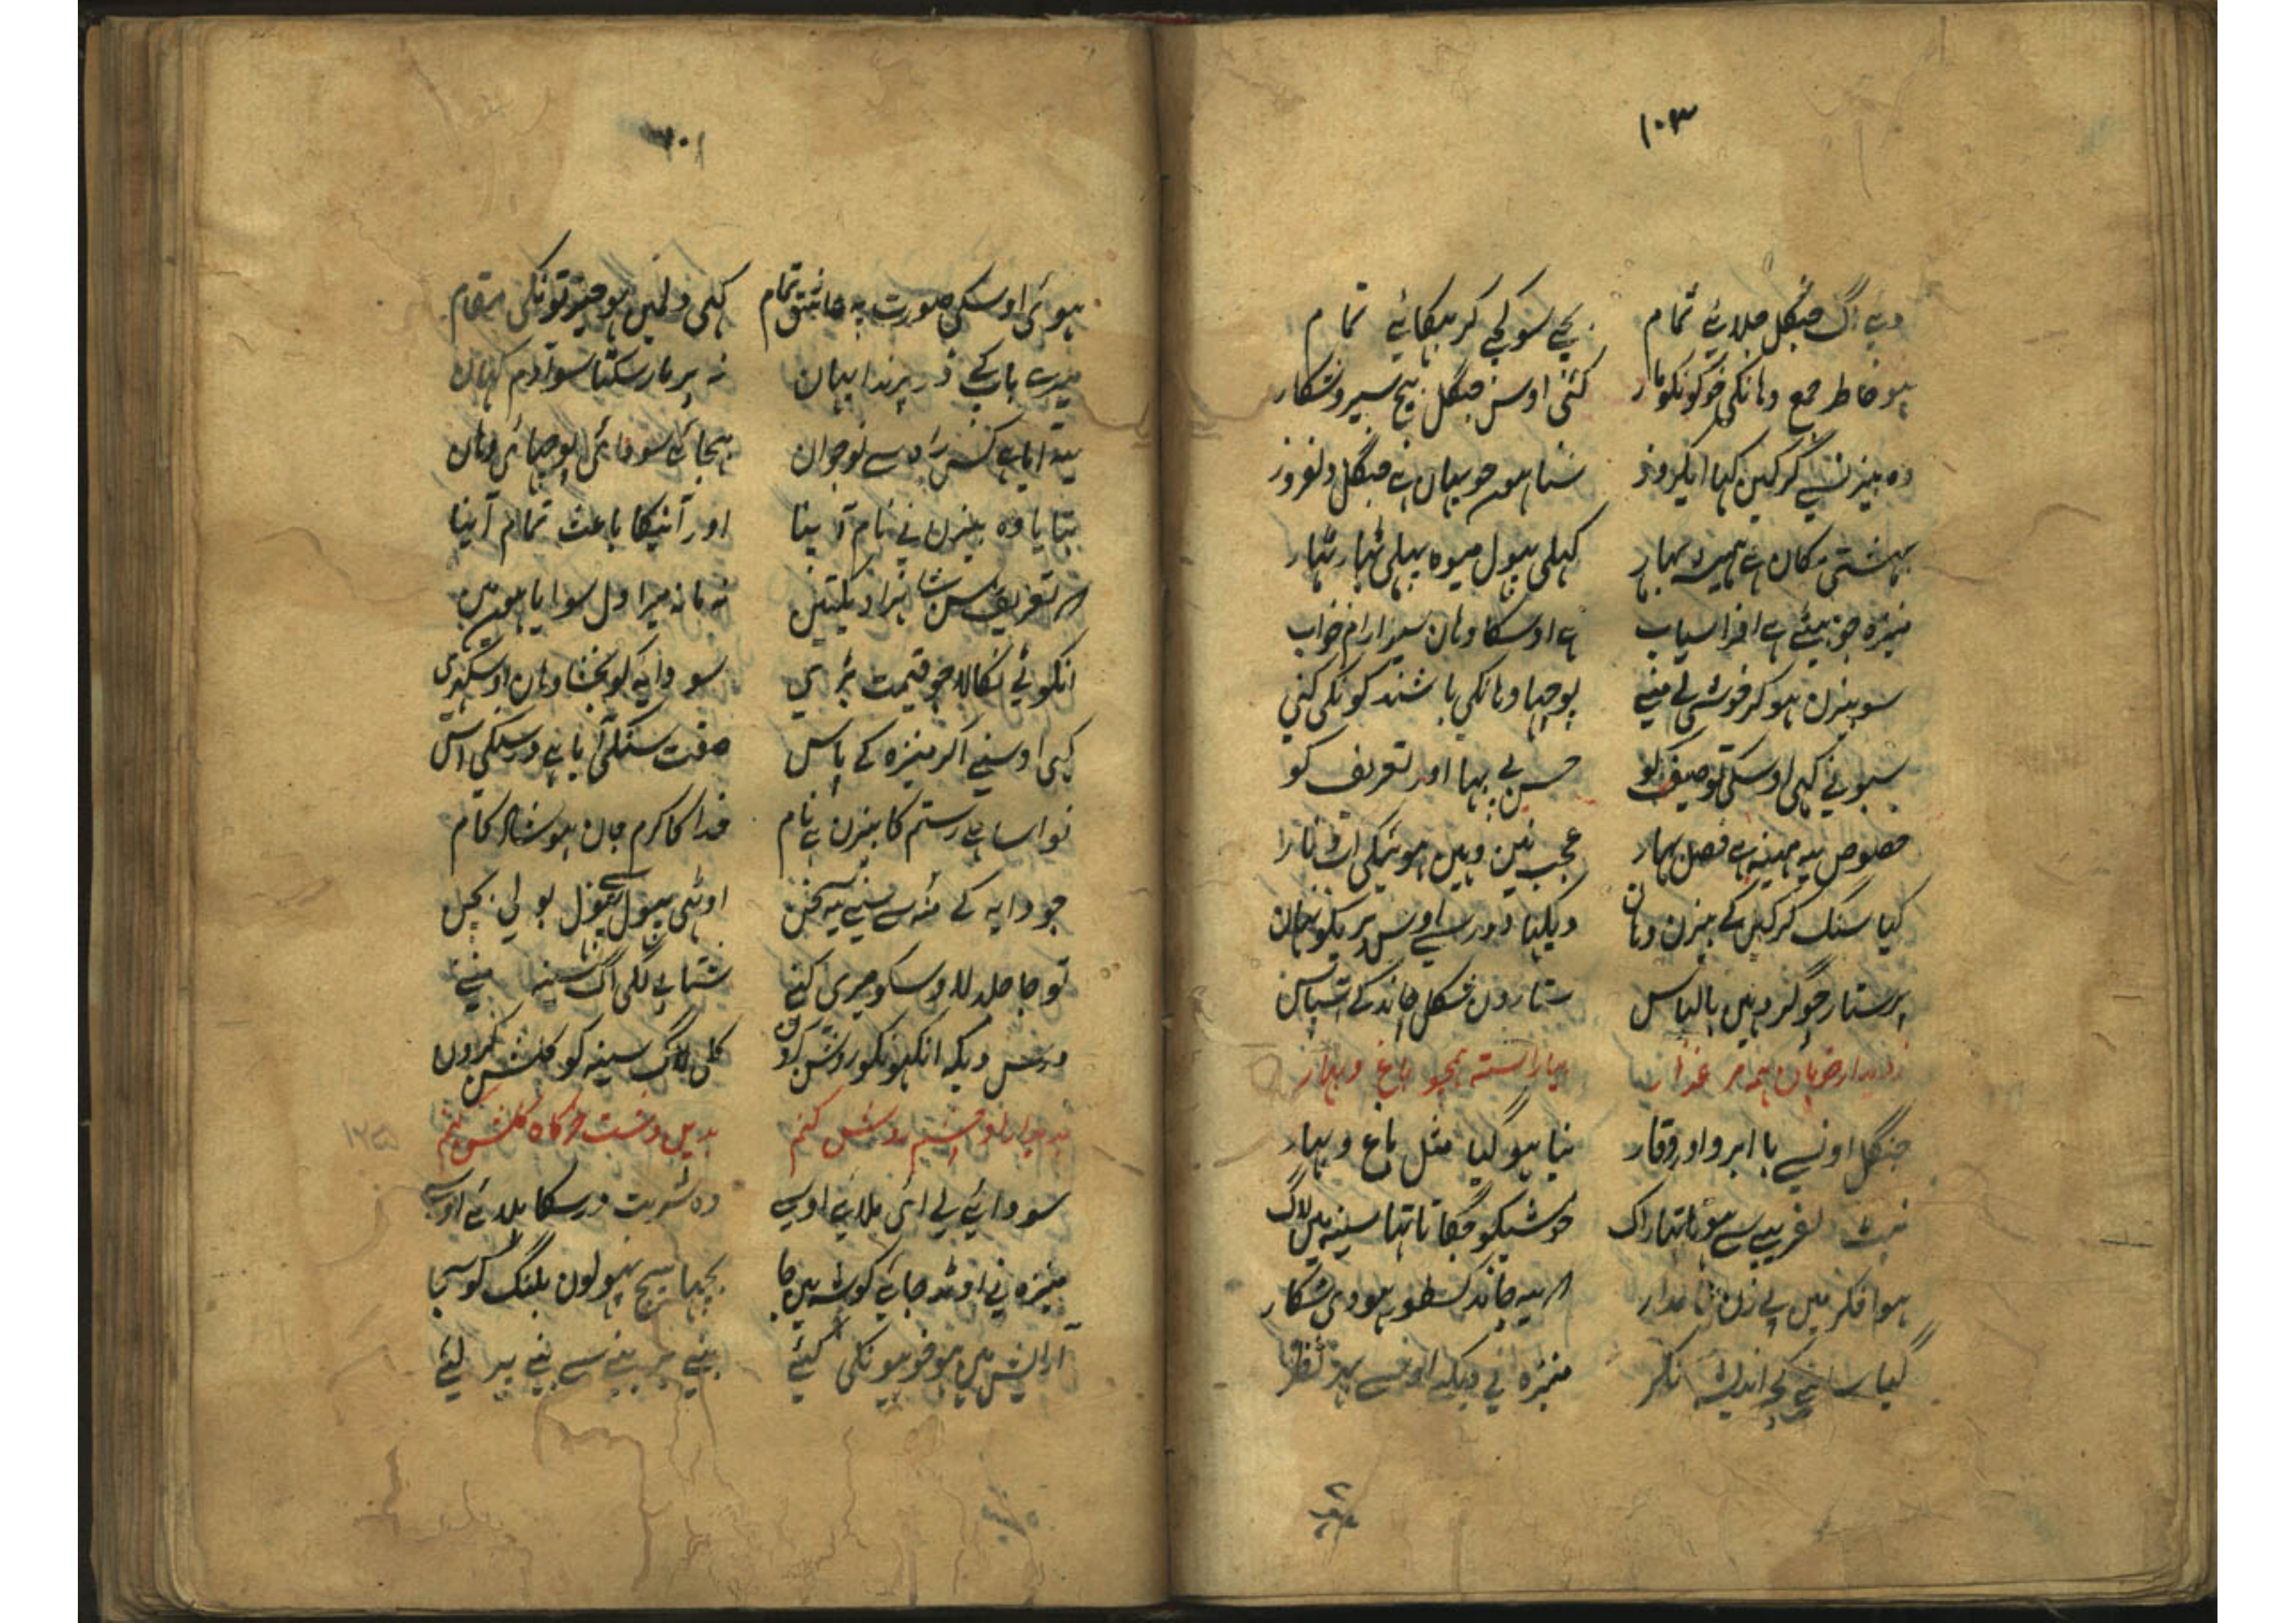 ۱۰۳
دے آگ جنگل جلائے تمام بچے سو کچے کر بہکائے تمام
ہو خاطر جمع وہانکی خوکونکو مار کئی اوس جنگل بیچ سیر و شکار
وہ بیزن سے گرکین کہا ایکروز سنا ہون جو یہان ہے جنگل دلفروز
بہشتی مکان ہے ہمیشہ بہار کہلی پہول میوہ پہلی ٹہار ٹہار
منیزہ جو بیٹی ہے افراسیاب ہے اوسکا وہان سیر ارام خواب
سو بیزن ہو کر خوشی لے منے پوچہا وہانکی باشند کونکی کنی
سبونے کہی اوسکی توصیف کو حسن بے بہا اور تعریف کو
خصوص یہ مہینہ ہے فصل بہار عجب نین وہین ہوئیگی
گیا سنگ گرکین کے بیزن وہان دیکہا دور سے اوس پریکو نہان
پرستار جو گرد ہین بالباس ستارون شکل چاند کے آسپاس
ز دیدار خوبان ہمہ مرغزار بیاراسته ہمچو باغ و بہار
جنگل اونسے با ابرو اور وقار نیا ہو گیا مثل باغ و بہار
سے ہوتا تہا راگ خوشیکو جگاتا تہا سینہ مین لاگ
ہوا فکر مین بے زن نامدار اگر یہ چاند کسطور ہووی شکار
گیا سامنے کچہ اندیشہ نکر منیزہ نے دیکہ اوسے بہر نظر
ہوئی اوسکی صورت پہ عاشق تمام کہی دلمین ہو جیوتونکی مقام
میرے باپ کے ڈر پرندا یہان نہ پر مار سکتا سو آدم کہان
یہ آیا ہے کس راہ سے نوجوان بہجائے سو دائی پوچہائی وہان
بتایا وہ بیزن نے نام آپنا اور آنیکا باعث تمام آپنا
تعریف سن شاہزادیکتین نہ مانہ میرا دل سو آیا ہون مین
انگوٹی نکالا جو قیمت بڑی سو دایہ کو بخشا وہان اوسگہڑی
کہی اوسنے اکر منیزہ کے پاس صفت سنگلی
نواسا ہے رستم کا بیزن ہے نام خدا کا کرم جان ہو شاد کام
جو دایہ کے منہ سے سنے یہ سخن اوٹہی پہول سے پہول بولی بچن
تو جا جلد لا اوسکو میری کنے شتابے لگی آگ سینہ منے
درس دیکہ انکہونکو روشن کرون گل لاگ سینہ کو گلشن کرون
بدیدار او چشم روشن کنم بدین دشت خرگاہ گلشن کنم
سو دائے لے آئی بلائے اوسے وہ شربت درسکا پلائے اوسے
منیزہ نے اوٹہ جاے گوشہ مین جا بچہا سیج پہولون پلنگ کو سجا
آرایش مین ہو خوبیونکی کئے